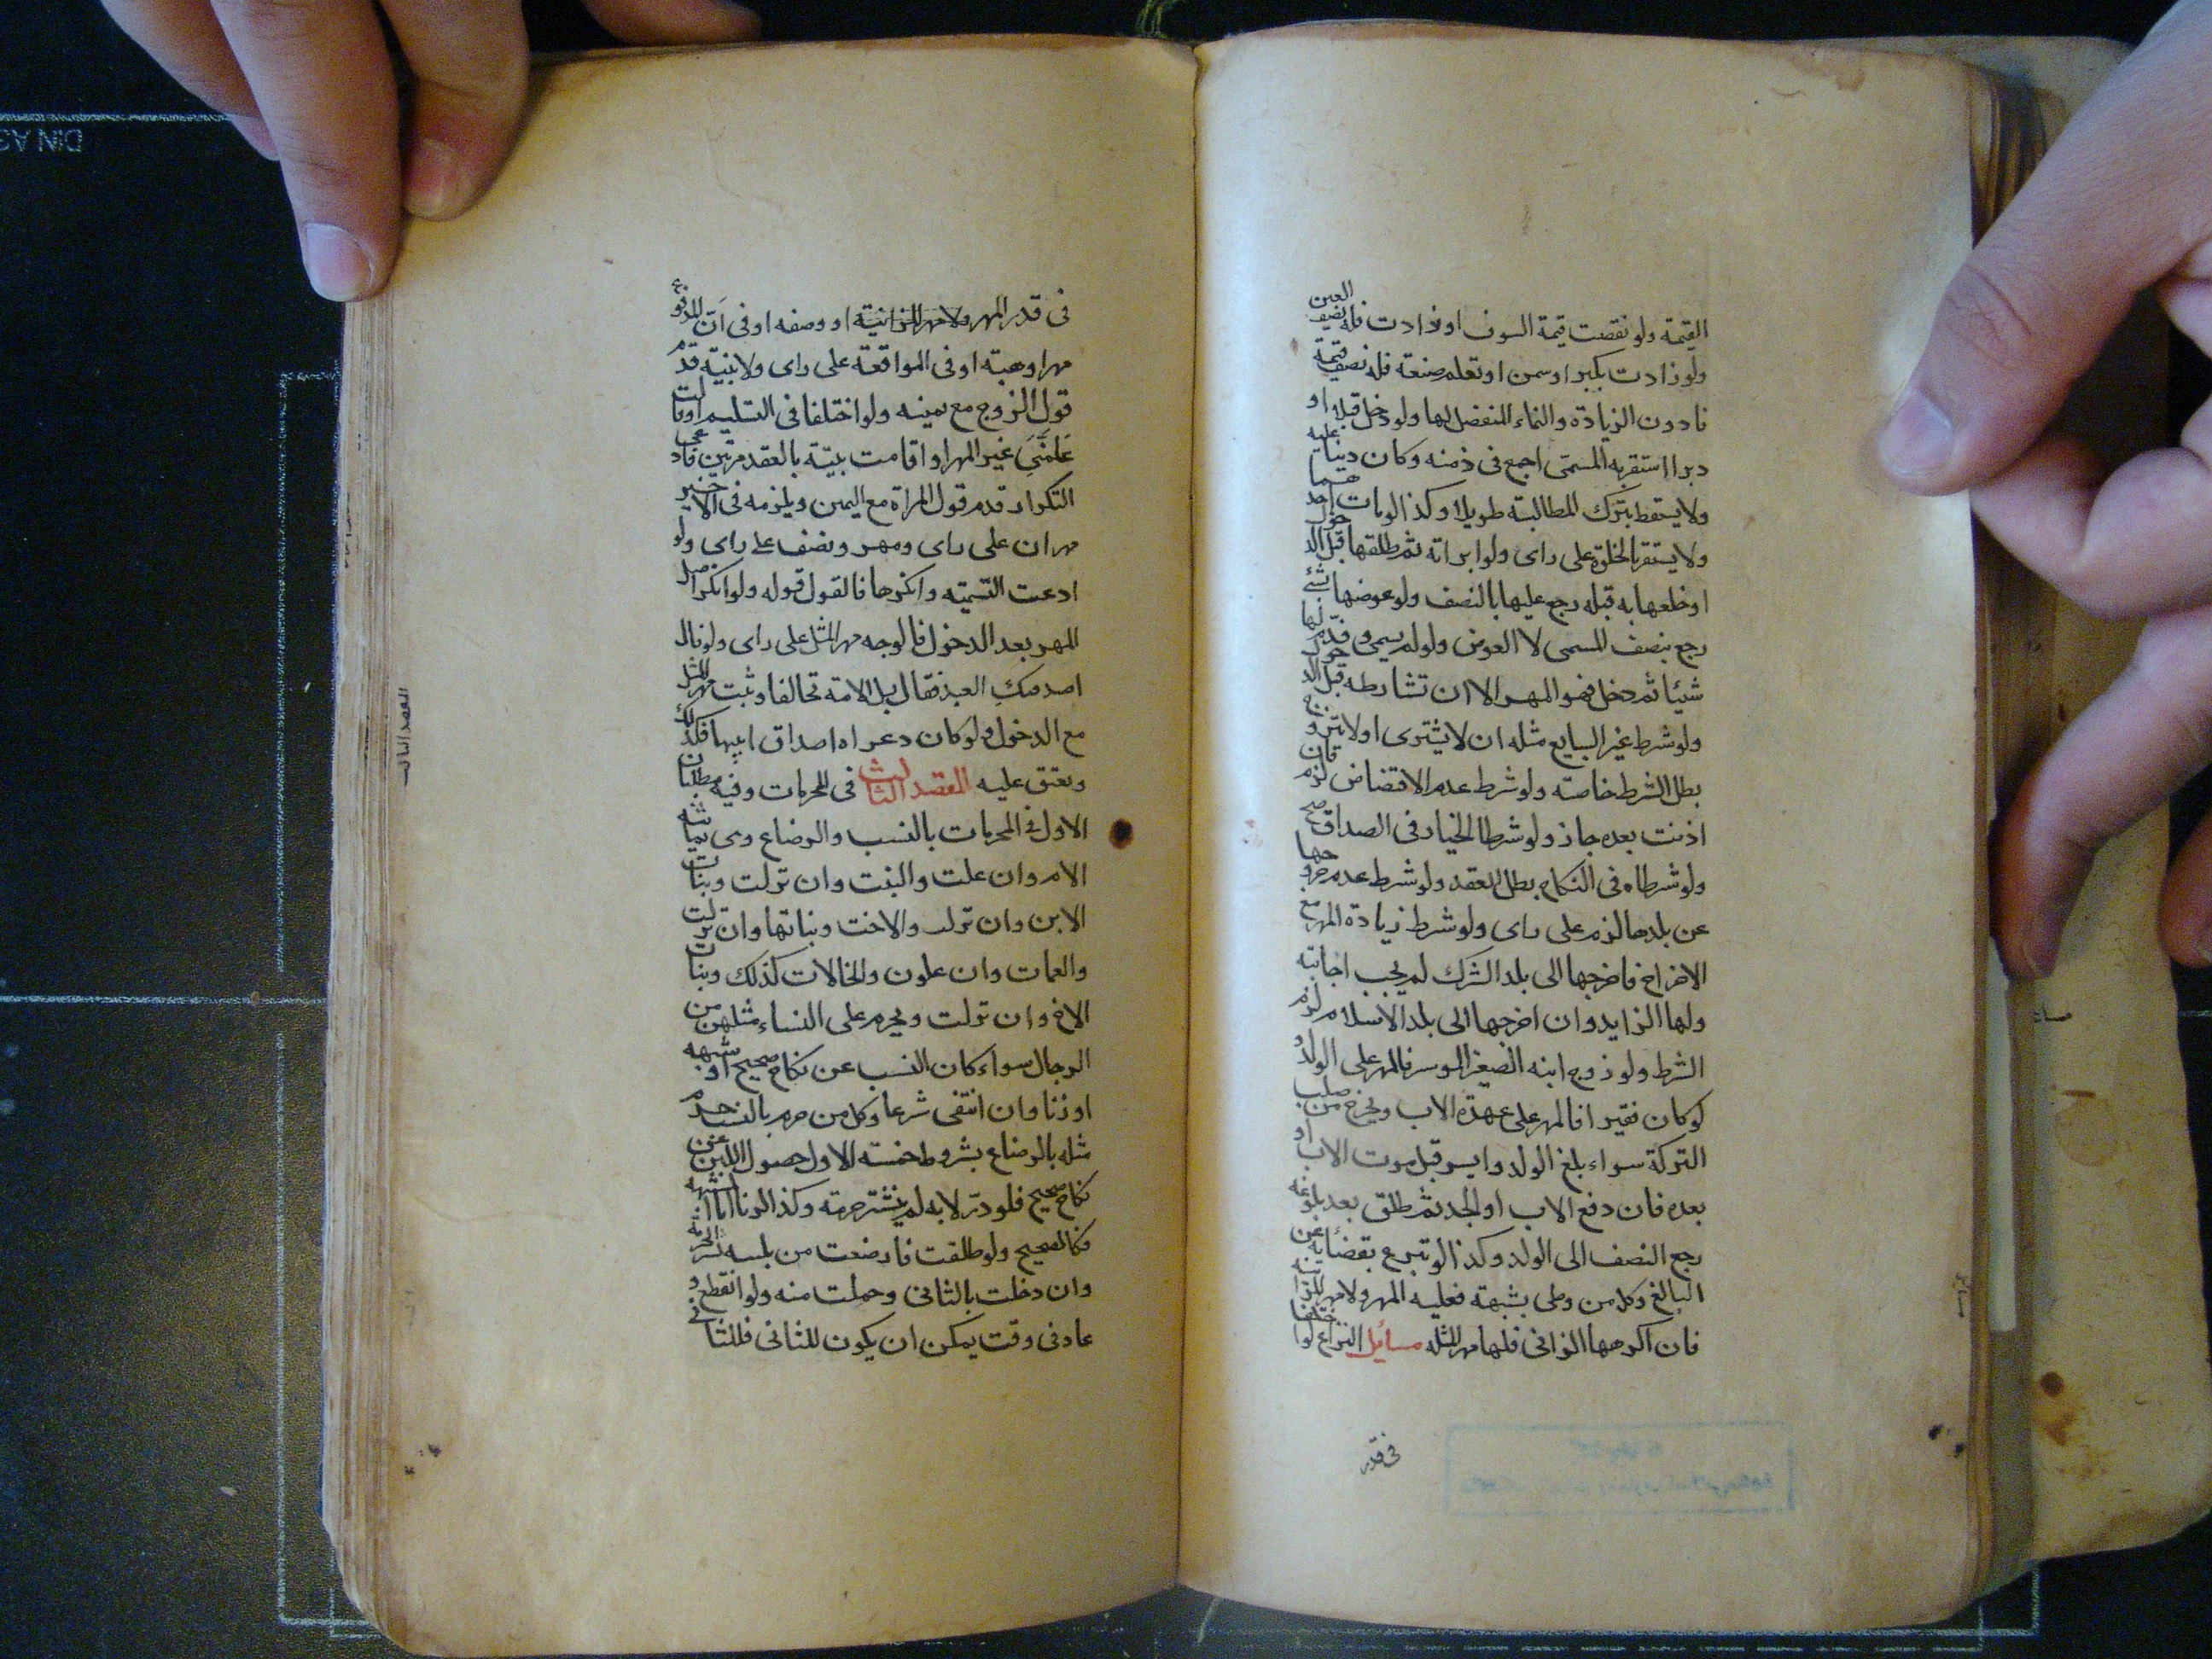 القيمة ولو نقصت قيمة السوق او زادت فله نصف العين
ولو زادت بكبر او سمن او تعلم صنعة فله نصف قيمة
نا دون الزيادة والنماء المنفصل لها ولو دخل قبلا او
دبرا استقر به المسمى اجمع في ذمته وكان دينا عليه
ولا يسقط بترك المطالبة طويلا وكذا لو مات احدهما
ولا يستقر بالخلوة على راى ولو ابراته ثم طلقها قبل الدخول
او خلعها به قبله رجع عليها بالنصف ولو عوضها بشئ
رجع بنصف المسمى لا العوض ولو لم يسمى وقدم لها
شيئا ثم دخل فهو المهر الا ان تشارطه قبل الدخول
ولو شرط غير السايغ مثله ان لا يشترى او لا يتزوج
بطل الشرط خاصة ولو شرط عدم الاقتضاض لزم فان
اذنت بعده جاز ولو شرطا الخيار في الصداق صح
ولو شرطاه في النكاح بطل العقد ولو شرط عدم خروجها
عن بلدها لزم على راى ولو شرط زيادة المهر مع
الاخراج فاخرجها الى بلد الشرك لم يجب اجابته
ولها الزايد وان اخرجها الى بلد الاسلام لزم
الشرط ولو زوج ابنه الصغير الموسر فالمهر على الولد و
لو كان فقيرا فالمهر على عهدة الاب ويخرج من صلب
التركة سواء بلغ الولد وايسر قبل موت الاب او
بعده فان دفع الاب او الجد ثم طلق بعد بلوغه
رجع النصف الى الولد وكذا لو تبرع بقضائه عن
البالغ وكل من وطى بشبهة فعليه المهر ولا مهر للزانية
فان اكرهها الزانى فلها مهر المثل مسائل النزاع لو اختلفا
فى قدر
فى قدر المهر ولا مهر للزانية او وصفه او فى ان المدفوع
مهر او هبة او فى المواقعة على راى ولا بينة قدم
قول الزوج مع يمينه ولو اختلفا فى التسليم او قالت
علمنى غير المهر او اقامت بينة بالعقد مرتين فادعى
التكرار قدم قول المراة مع اليمين ويلزمه فى الاخير
مهران على راى ومهر ونصف على راى ولو
ادعت التسمية وانكرها فالقول قوله ولو انكر اصل
المهر بعد الدخول فالوجه مهر المثل على راى ولو قال
اصدقتك العبد فقال بل الامة تحالفا وثبت مهر المثل
مع الدخول ولو كان دعواه اصداق ابيها فكذلك
ويعتق عليه المقصد الثالث فى المحرمات وفيه مطلبان
الاول فى المحرمات بالنسب والرضاع وهى ثمانية
الام وان علت والبنت وان نزلت وبنات
الابن وان نزلت والاخت وبناتها وان نزلت
والعمات وان علون والخالات كذلك وبنات
الاخ وان نزلت ويحرم على النساء مثلهن من
الرجال سواء كان النسب عن نكاح صحيح او شبهة
او زنا وان انتفى شرعا وكل من حرم بالنسب حرم
مثله بالرضاع بشروط خمسة الاول حصول اللبن عن
نكاح صحيح فلو در لا به لم ينشر حرمة وكذا الزنا اما الشبهة
فكالصحيح ولو طلقت فارضعت من بلبنه نشر الحرمة
وان دخلت بالثانى وحملت منه ولو انقطع و
عاد فى وقت يمكن ان يكون للثانى فللثانى